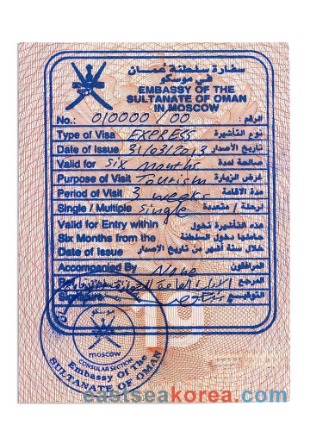 سفارة سلطنة عمان
في موسكو
EMBASSY OF THE
SULTANATE OF OMAN
IN MOSCOW
No.: 010000/00 الرقم:
Type of Visa EXPRESS نوع التأشيرة
Date of Issue 31/03/2013 تاريخ الأصدار
Valid for six months صالحة لمدة
Purpose of Visit Tourism غرض الزيارة
Period of Visit 3 weeks مدة الاقامة
Single / Multiple Single
Valid for Entry within هذه التأشيرة تخول
Six Months from the حاملها دخول السلطنة
Date of Issue خلال ستة أشهر من تاريخ الاصدار
Accompanied By None المرافقون
المرجع
التوقيع
19
moscow
CONSULAR SECTION
Embassy of the
SULTANATE OF OMAN
eastseakorea.com